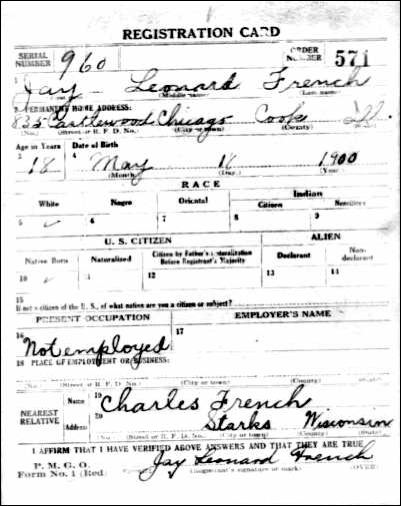 REGISTRATION CARD
SERIAL NUMBER 960 ORDER NUMBER 571
1 Jay Leonard French
(Middle name) (Last name)
2 PERMANENT HOME ADDRESS:
835 Castlewood Chicago Cook Ill.
(No.) (Street or R. F. D. No.) (City or town) (County)
Age in Years Date of Birth
3 18 4 May 16 1900
(Month) (Day) (Year)
RACE
White Negro Oriental Indian
Citizen Noncitizen
5 ✓ 6 7 8 9
U. S. CITIZEN ALIEN
Native Born Naturalized Citizen by Father's Naturalization Before Registrant's Majority Declarant Non-declarant
10 ✓ 12 13 14
15
If not a citizen of the U. S., of what nation are you a citizen or subject?
PRESENT OCCUPATION EMPLOYER'S NAME
16 Not employed 17
18 PLACE OF EMPLOYMENT OR BUSINESS:
(No.) (Street or R. F. D. No.) (City or town) (County) (State)
NEAREST RELATIVE
Name 19 Charles French
Address 20 Starks Wisconsin
(No.) (Street or R. F. D. No.) (City or town) (County) (State)
I AFFIRM THAT I HAVE VERIFIED ABOVE ANSWERS AND THAT THEY ARE TRUE
P. M. G. O.
Form No. 1 (Red) Jay Leonard French
(Registrant's signature or mark) (OVER)